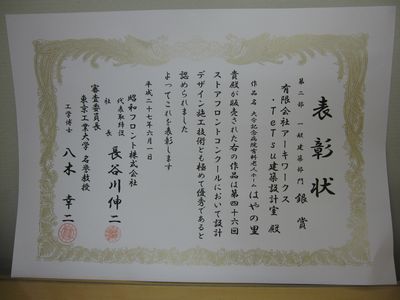 表彰状
第二部 一般建築部門 銀賞
有限会社アーキワークス
・TeTsu建築設計室 殿
作品名 大分記念病院有料老人ホーム はやの里
貴殿が販売された右の作品は第四十六回
ストアフロントコンクールにおいて設計
デザイン施工技術とも極めて優秀であると
認められました
よってこれを表彰します
平成二十七年六月一日
昭和フロント株式会社
代表取締役
社長 長谷川伸二
審査委員長
東京工業大学 名誉教授
工学博士 八木幸二